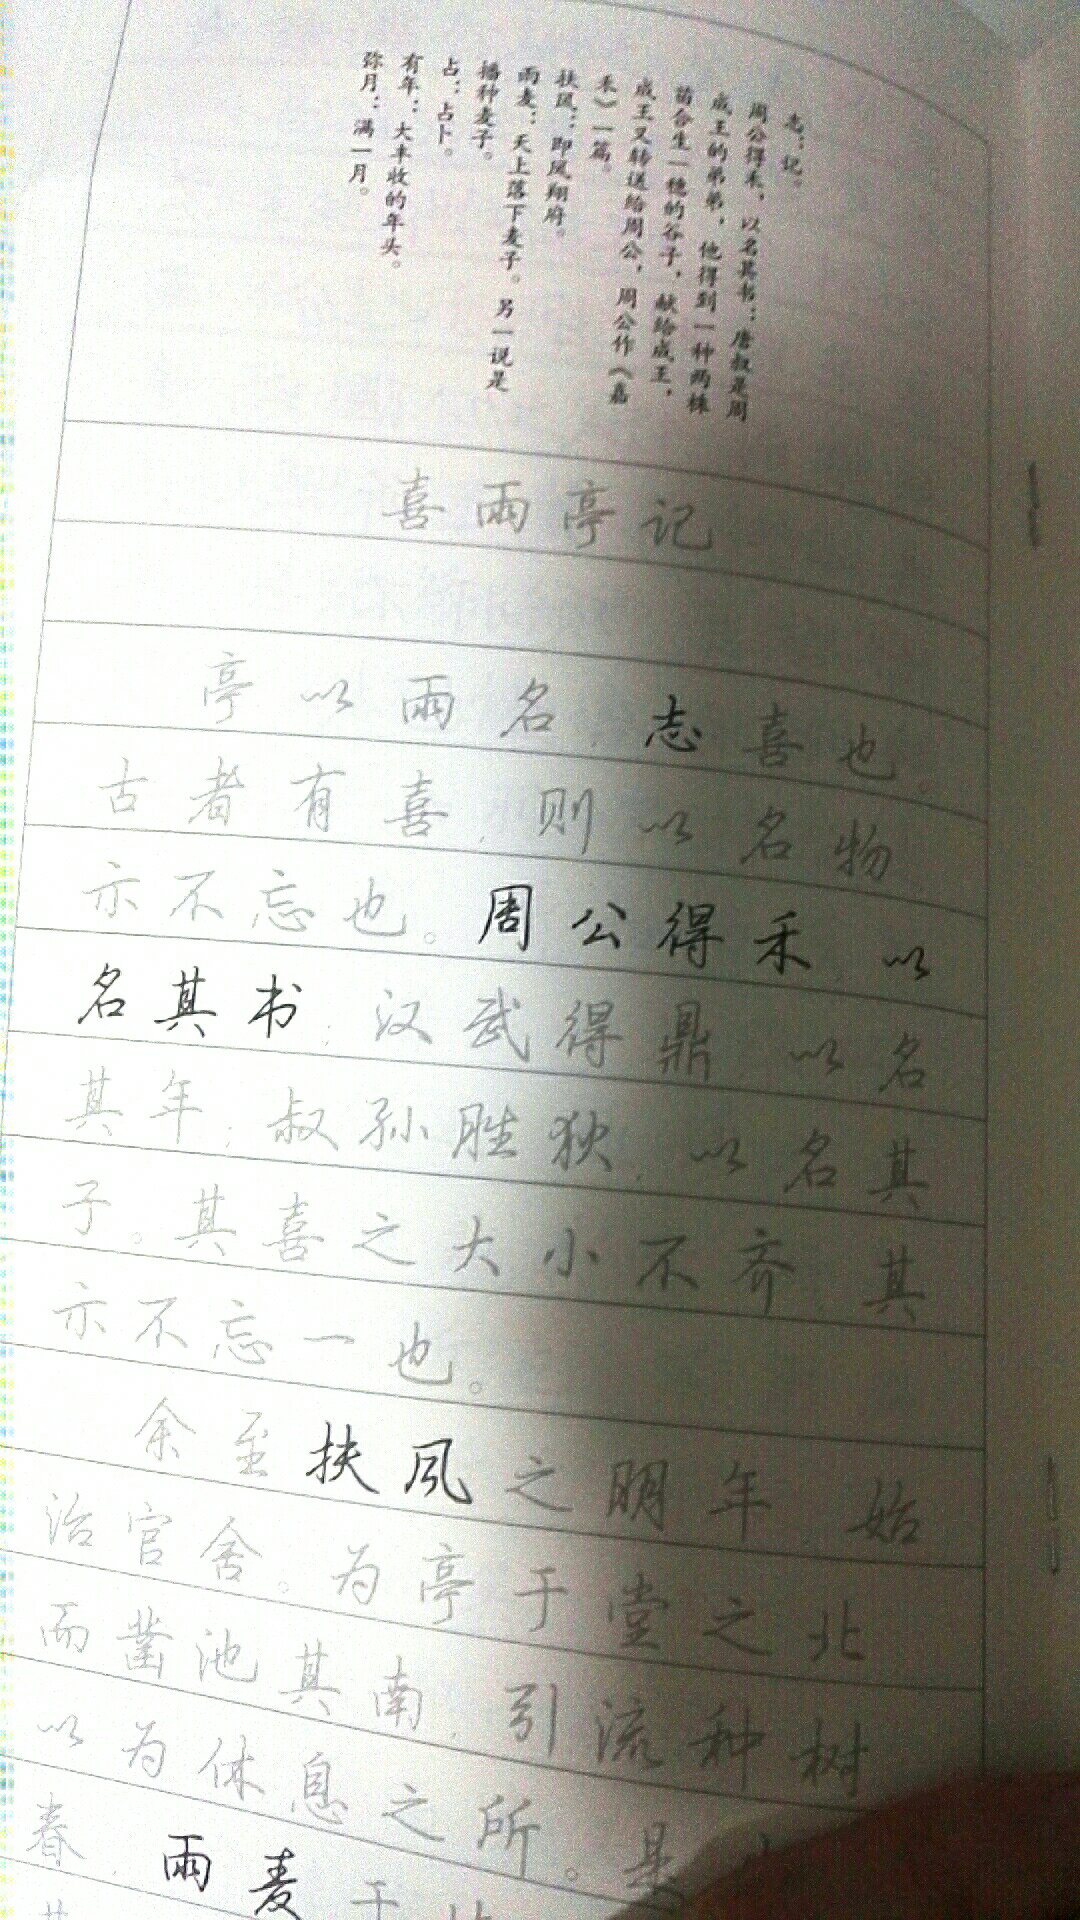 志：记。
周公得禾，以名其书：唐叔是周
成王的弟弟，他得到一种两株
苗合生一穗的谷子，献给成王，
成王又转送给周公，周公作《嘉
禾》一篇。
扶风：即凤翔府。
雨麦：天上落下麦子。另一说是
播种麦子。
占：占卜。
有年：大丰收的年头。
弥月：满一月。
喜雨亭记
亭以雨名，志喜也
古者有喜，则以名物
亦不忘也。周公得禾，以
名其书；汉武得鼎 以名
其年；叔孙胜狄，以名其
子。其喜之大小不齐 其
示不忘一也。
余至扶风之明年 始
治官舍。为亭于堂之北
而凿池其南，引流种树
以为休息之所。是
春，雨麦于
其